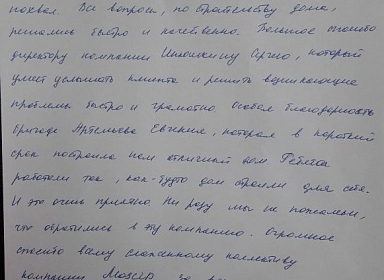 похвал. Все вопросы, по строительству дома,
решались быстро и качественно. Большое спасибо
директору компании Сергею, который
умеет услышать клиента и решить возникающие
проблемы быстро и грамотно. Особая благодарность
бригаде Артемьева Евгения, которая в короткий
срок построила нам отличный дом. Ребята
работали так, как-будто дом строили для себя.
И это очень приятно. Ни разу мы не пожалели,
что обратились в эту компанию. Огромное
спасибо вашу слаженному коллективу
компании